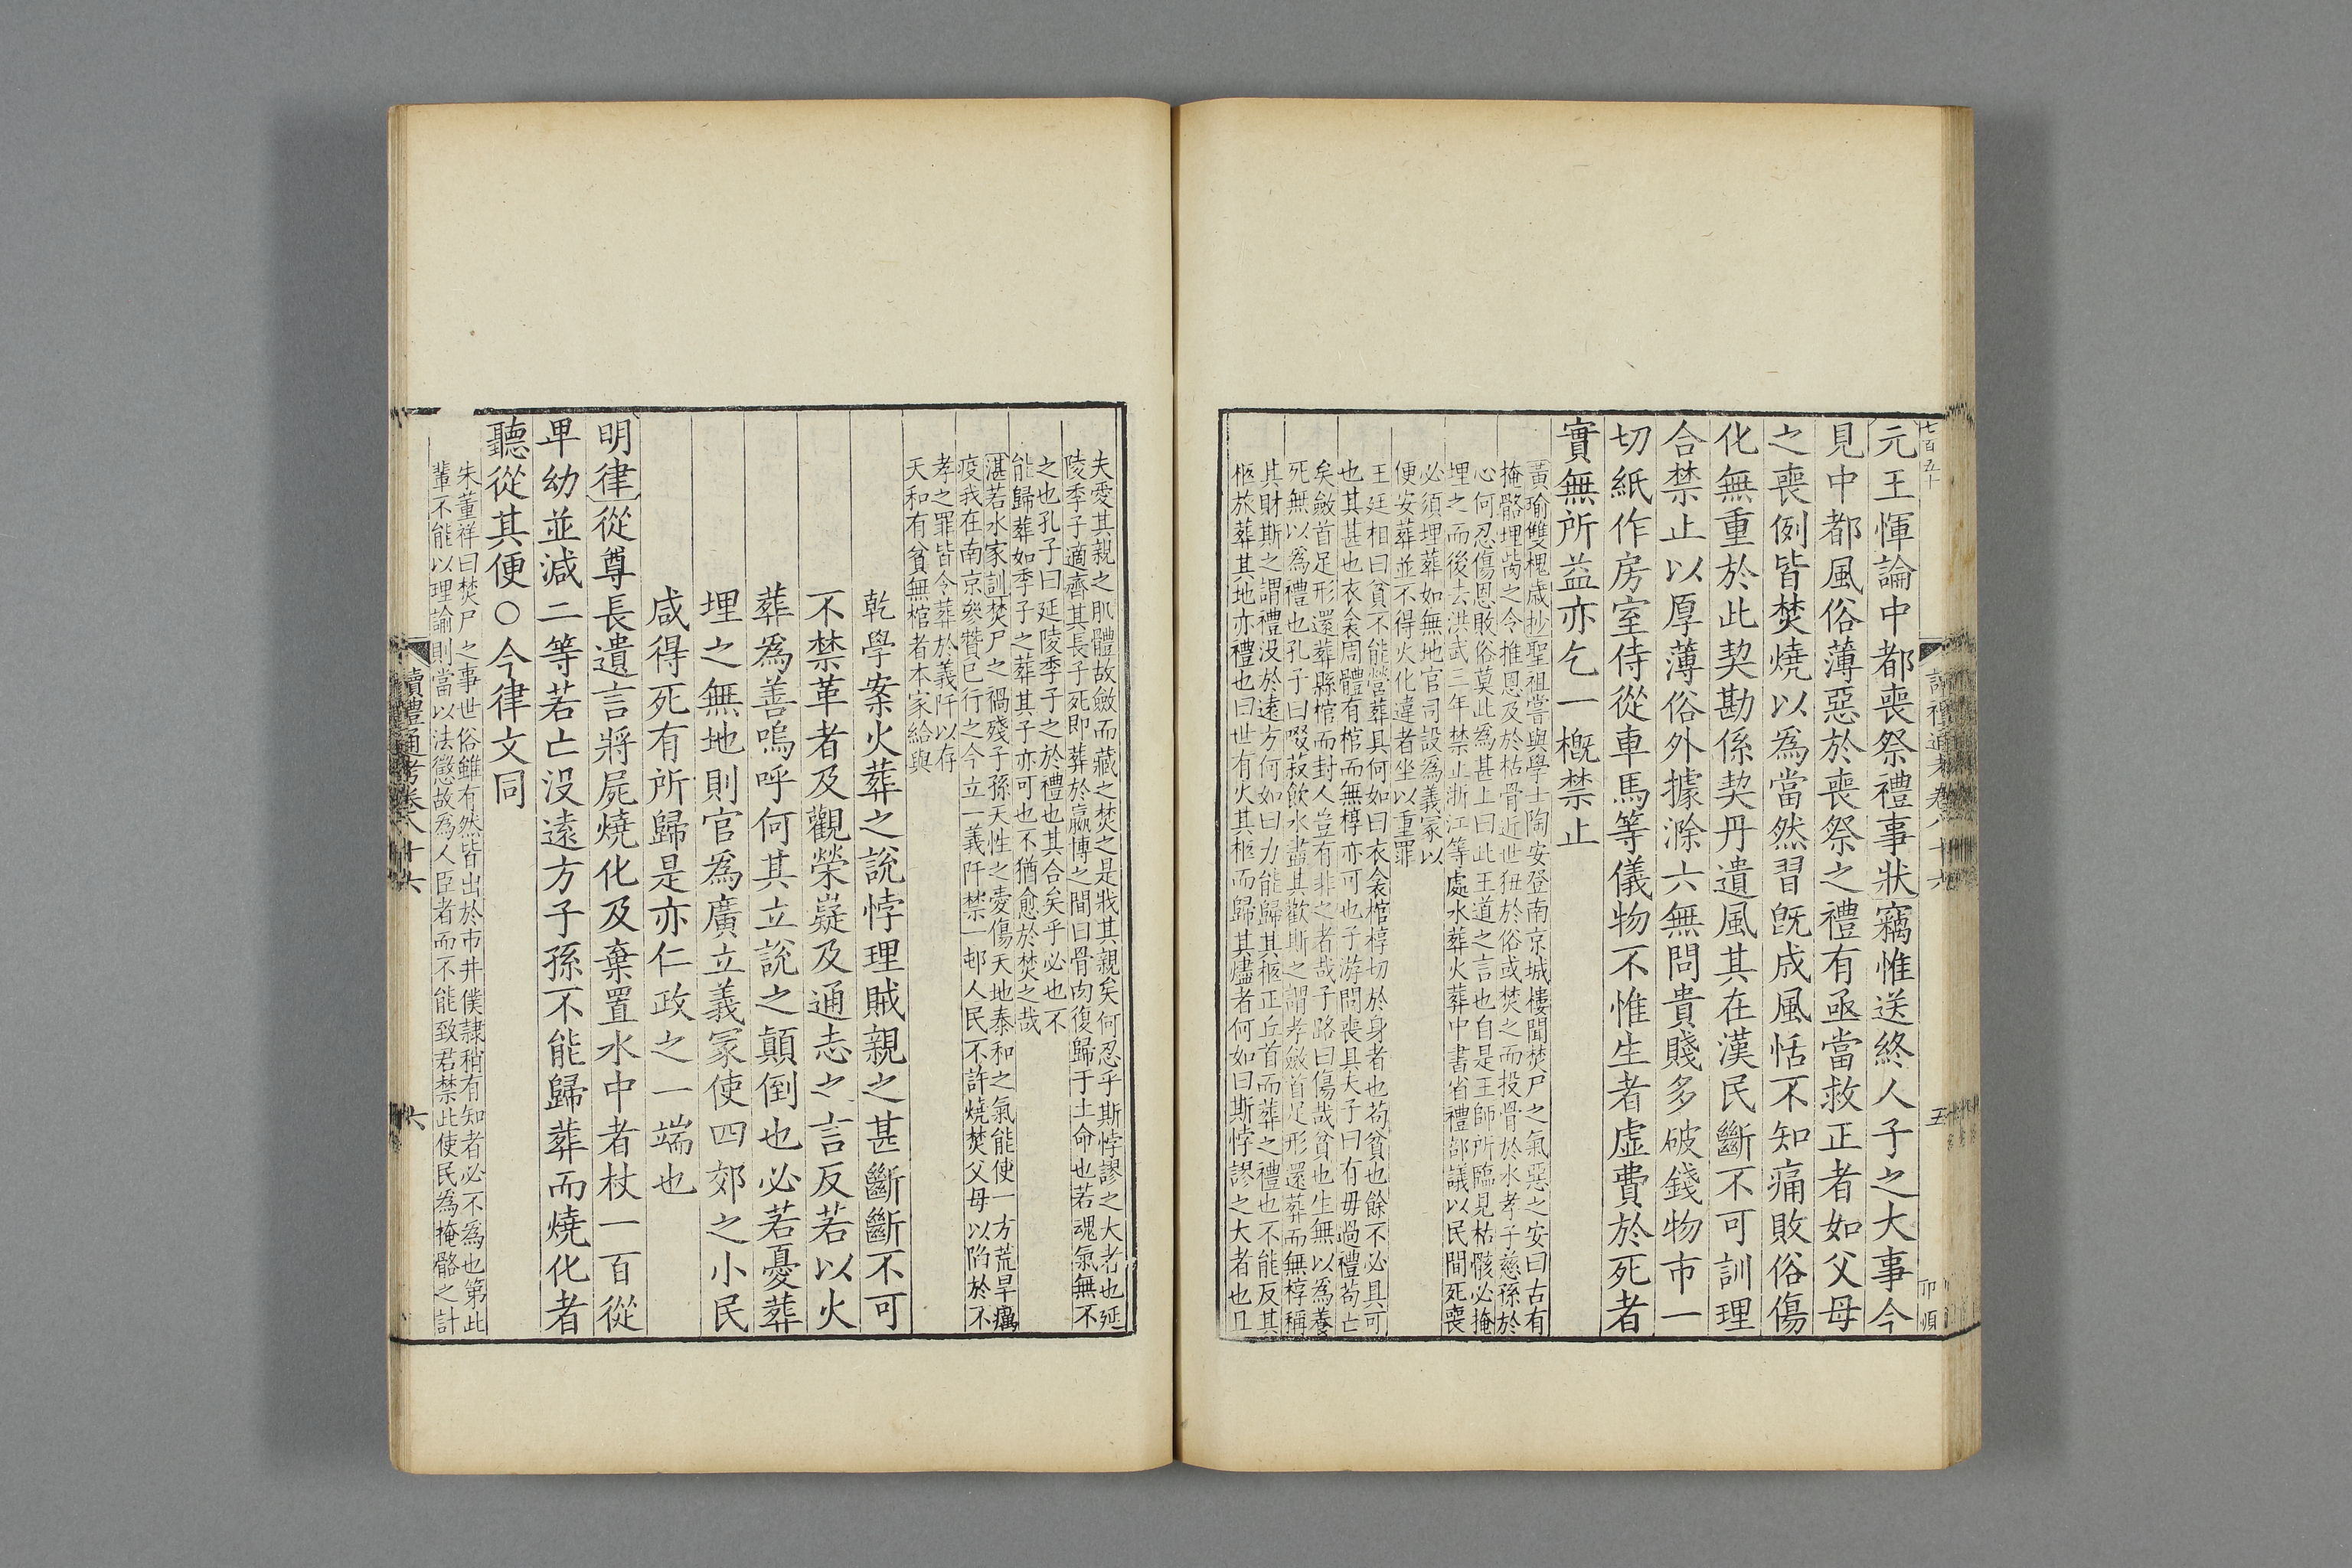 七百五十
讀禮通考卷八十六
五
元王惲論中都喪祭禮事狀竊惟送終人子之大事今
見中都風俗薄惡於喪祭之禮有亟當救正者如父母
之喪例皆焚燒以為當然習旣成風恬不知痛敗俗傷
化無重於此契勘係契丹遺風其在漢民斷不可訓理
合禁止以厚薄俗外據滁六無問貴賤多破錢物市一
切紙作房室侍從車馬等儀物不惟生者虛費於死者
實無所益亦乞一槪禁止
黃瑜雙槐歲抄聖祖嘗與學士陶安登南京城樓聞焚尸之氣惡之安曰古有
掩骼埋胔之令推恩及於枯骨近世狃於俗或焚之而投骨於水孝子慈孫於
心何忍傷恩敗俗莫此為甚上曰此王道之言也自是王師所臨見枯骸必掩
埋之而後去洪武三年禁止浙江等處水葬火葬中書省禮部議以民間死喪
必須埋葬如無地官司設為義冢以
便安葬並不得火化違者坐以重罪
王廷相曰貧不能營葬具何如曰衣衾棺椁切於身者也苟貧也餘不必具可
也其甚也衣衾周體有棺而無椁亦可也子游問喪具夫子曰有毋過禮苟亡
矣斂首足形還葬縣棺而封人豈有非之者哉子路曰傷哉貧也生無以為養
死無以為禮也孔子曰啜菽飲水盡其歡斯之謂孝斂首足形還葬而無椁稱
其財斯之謂禮没於遠方何如曰力能歸其柩正丘首而葬之禮也不能反其
柩於葬其地亦禮也曰世有火其柩而歸其燼者何如曰斯悖謬之大者也且
夫愛其親之肌體故斂而藏之焚之是戕其親矣何忍乎斯悖謬之大者也延
陵季子適齊其長子死即葬於嬴博之間曰骨肉復歸于土命也若魂氣無不
之也孔子曰延陵季子之於禮也其合矣乎必也不
能歸葬如季子之葬其子亦可也不猶愈於焚之哉
湛若水家訓焚尸之禍殘子孫天性之愛傷天地泰和之氣能使一方荒旱癘
疫我在南京參贊已行之今立一義阡禁一邨人民不許燒焚父母以陷於不
孝之罪皆令葬於義阡以存
天和有貧無棺者本家給與
乾學案火葬之說悖理賊親之甚斷斷不可
不禁革者及觀榮嶷及通志之言反若以火
葬爲善嗚呼何其立說之顛倒也必若憂葬
埋之無地則官爲廣立義冢使四郊之小民
咸得死有所歸是亦仁政之一端也
明律從尊長遺言將屍燒化及棄置水中者杖一百從
卑幼並減二等若亡没遠方子孫不能歸葬而燒化者
聽從其便○今律文同
朱董祥曰焚尸之事世俗雖有然皆出於市井僕隷稍有知者必不為也第此
輩不能以理諭則當以法懲故為人臣者而不能致君禁此使民為掩骼之計
讀禮通考卷八十六
六